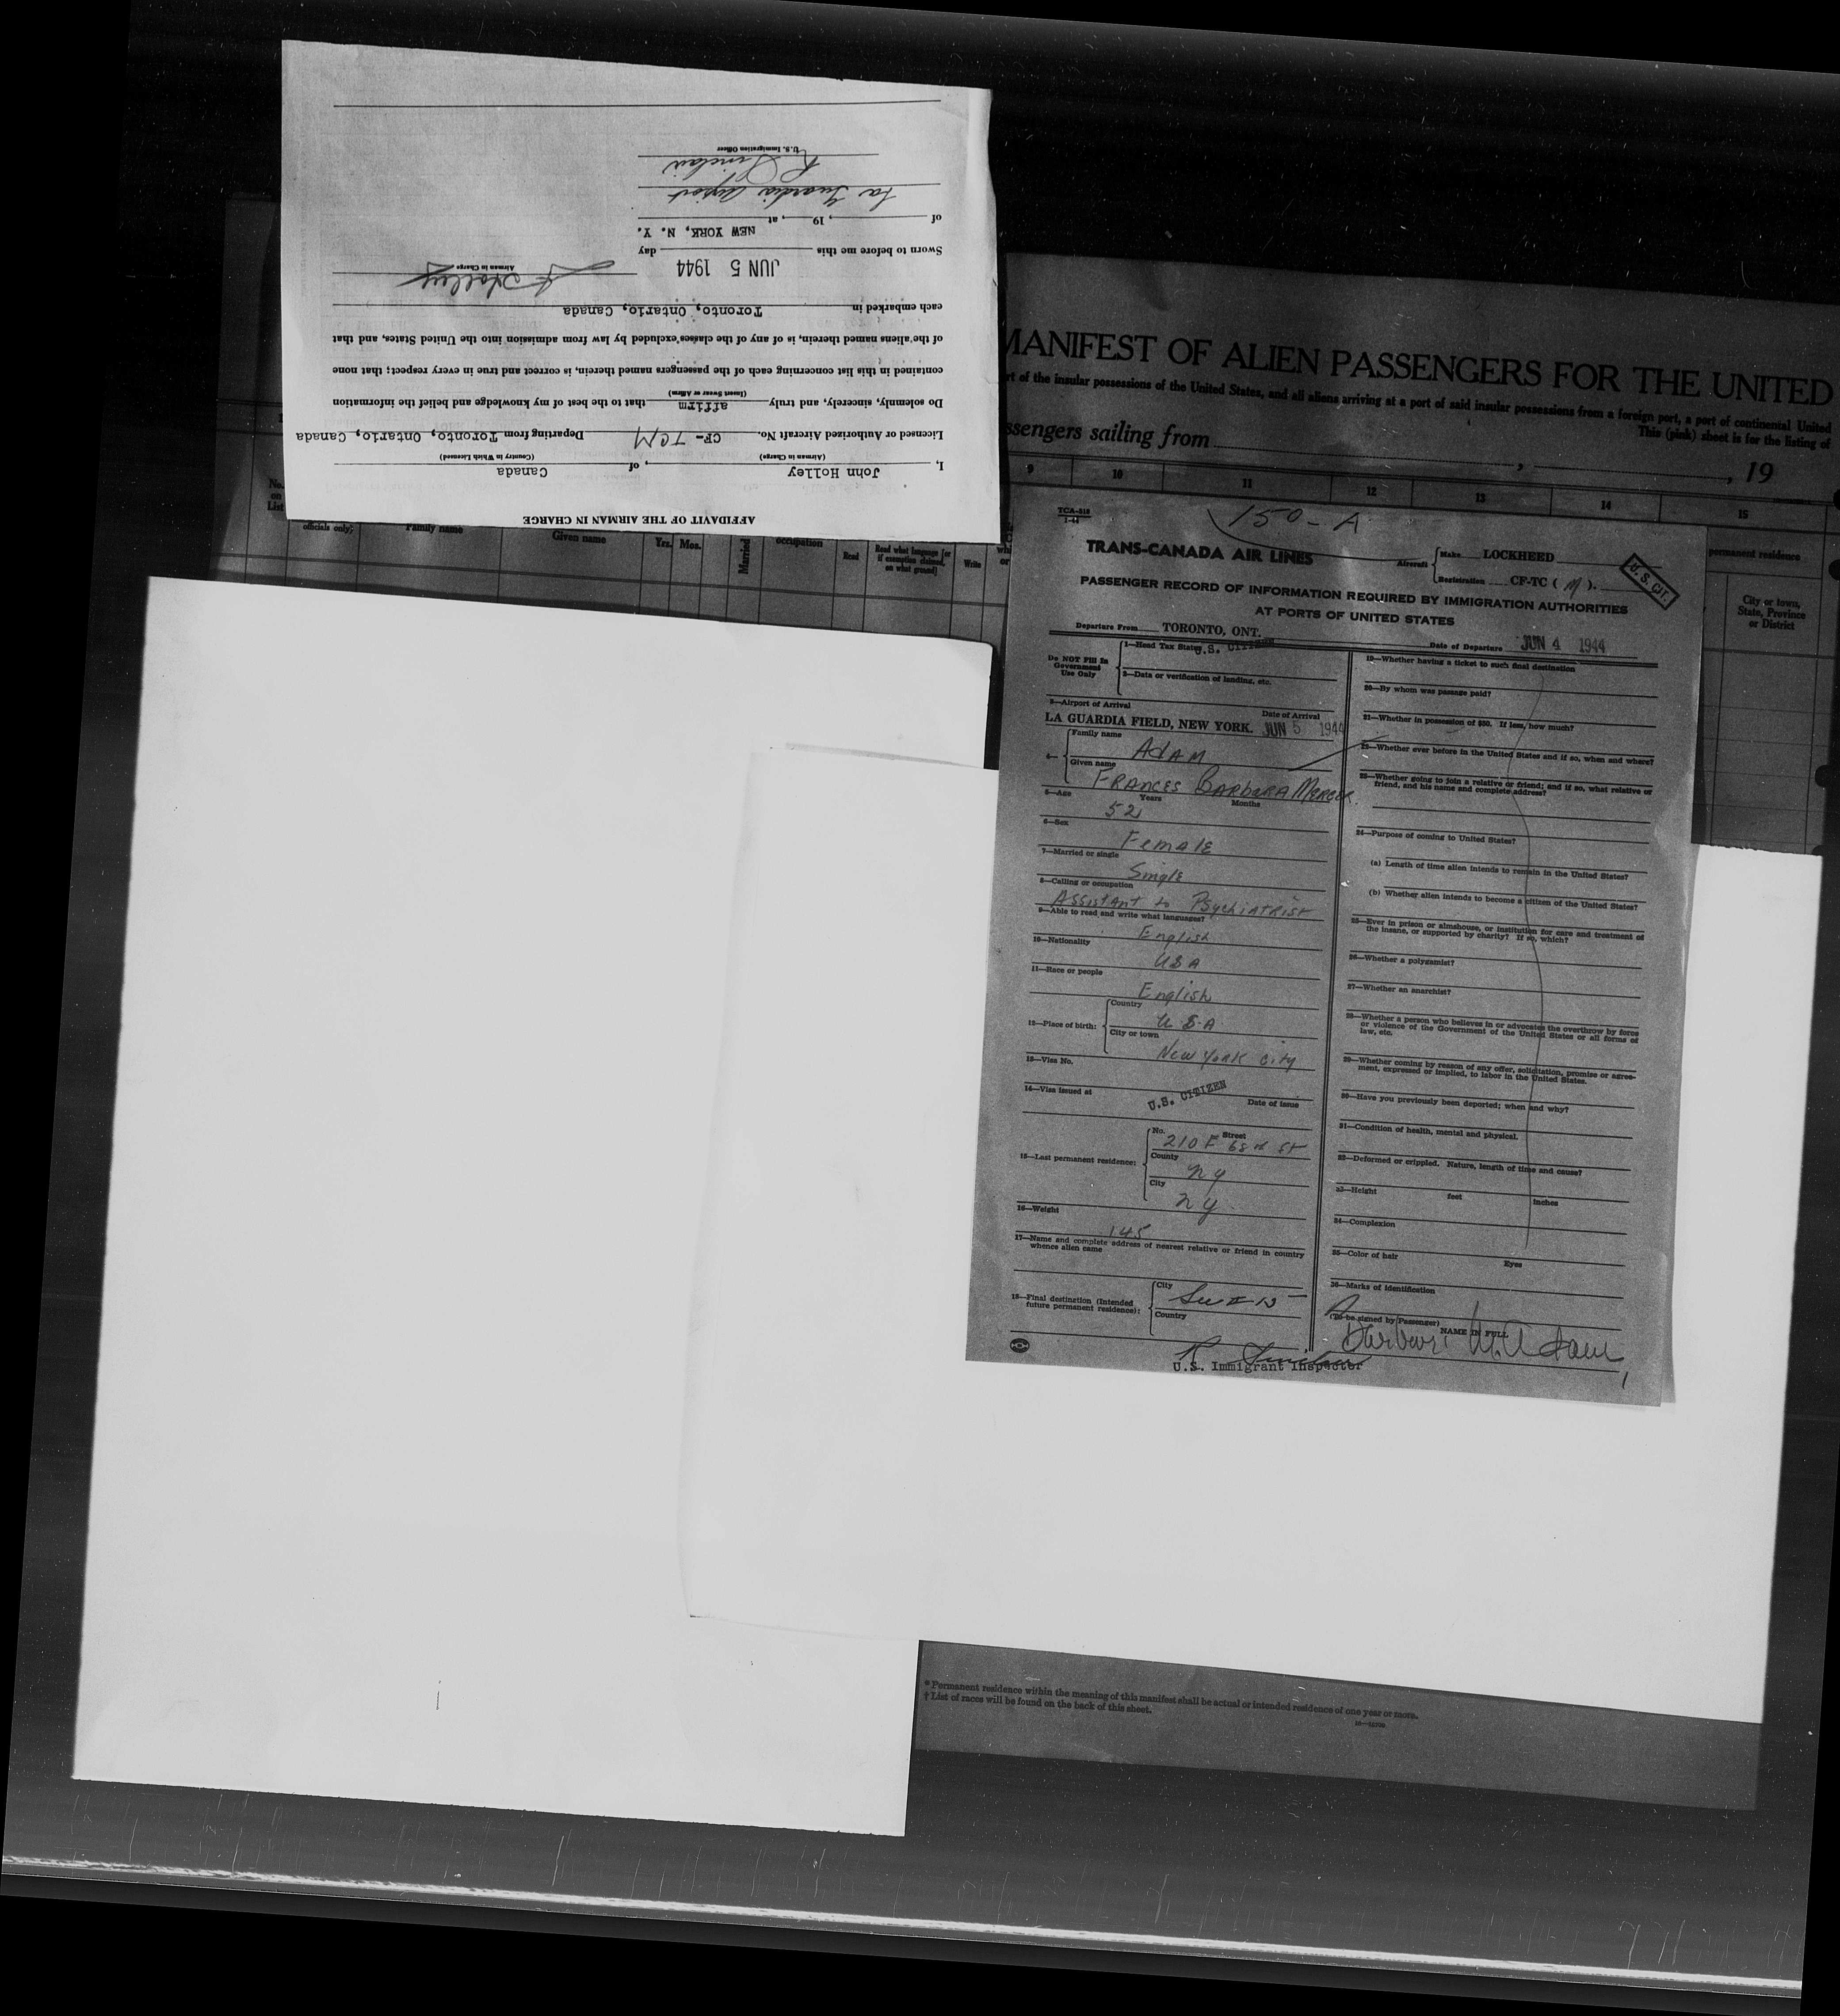 AFFIDAVIT OF THE AIRMAN IN CHARGE
I, John Holley, of Canada
(Airman in Charge) (Country in Which Licensed)
Licensed or Authorized Aircraft No. CF- TCM Departing from Toronto, Ontario, Canada
Do solemnly, sincerely, and truly affirm that to the best of my knowledge and belief the information
(Insert Swear or Affirm)
contained in this list concerning each of the passengers named therein, is correct and true in every respect; that none
of the aliens named therein, is of any of the classes excluded by law from admission into the United States, and that
each embarked in Toronto, Ontario, Canada
J Holley
Airman in Charge
JUN 5 1944
Sworn to before me this day
NEW YORK, N. Y.
of , 19 , at
La Guardia Airport
R Sinclair
U.S. Immigration Officer
MANIFEST OF ALIEN PASSENGERS FOR THE UNITED
of the insular possessions of the United States, and all aliens arriving at a port of said insular possessions from a foreign port, a port of continental United
This (pink) sheet is for the listing of
sailing from , , 19
9 10 11 12 13 14 15
No. on List
officials only;
Family name
Given name
Yrs. Mos.
Married
occupation
Read
Read what language [or if exemption claimed, on what ground]
Write
permanent residence
City or town, State, Province or District
TCA-518
1-44
150-A
TRANS-CANADA AIR LINES
Aircraft
Make LOCKHEED
Registration CF-TC ( M ).
U. S. CIT.
PASSENGER RECORD OF INFORMATION REQUIRED BY IMMIGRATION AUTHORITIES
AT PORTS OF UNITED STATES
Departure From TORONTO, ONT.
Date of Departure JUN 4 1944
Do NOT Fill In Government Use Only
1—Head Tax Status U.S. CITIZEN
2—Data or verification of landing, etc.
3—Airport of Arrival Date of Arrival
LA GUARDIA FIELD, NEW YORK. JUN 5 1944
4—
Family name
ADAM
Given name
FRANCES BARBARA MERCER
5—Age Years Months
52
6—Sex
Female
7—Married or single
Single
8—Calling or occupation
Assistant to Psychiatrist
9—Able to read and write what languages?
English
10—Nationality
USA
11—Race or people
English
12—Place of birth:
Country
U S A
City or town
New York City
13—Visa No.
14—Visa issued at Date of issue
U.S. CITIZEN
15—Last permanent residence:
No. Street
210 E 68th St
County
NY
City
NY
16—Weight
145
17—Name and complete address of nearest relative or friend in country
whence alien came
18—Final destination (Intended
future permanent residence):
City
See # 15
Country
R Sinclair
U.S. Immigrant Inspector
19—Whether having a ticket to such final destination
20—By whom was passage paid?
21—Whether in possession of $50. If less, how much?
22—Whether ever before in the United States and if so, when and where?
23—Whether going to join a relative or friend; and if so, what relative or
friend, and his name and complete address?
24—Purpose of coming to United States?
(a) Length of time alien intends to remain in the United States?
(b) Whether alien intends to become a citizen of the United States?
25—Ever in prison or almshouse, or institution for care and treatment of
the insane, or supported by charity? If so, which?
26—Whether a polygamist?
27—Whether an anarchist?
28—Whether a person who believes in or advocates the overthrow by force
or violence of the Government of the United States or all forms of
law, etc.
29—Whether coming by reason of any offer, solicitation, promise or agree-
ment, expressed or implied, to labor in the United States.
30—Have you previously been deported; when and why?
31—Condition of health, mental and physical.
32—Deformed or crippled. Nature, length of time and cause?
33—Height feet inches
34—Complexion
35—Color of hair Eyes
36—Marks of identification
(To be signed by Passenger)
NAME IN FULL
Barbara M. Adam
1
* Permanent residence within the meaning of this manifest shall be actual or intended residence of one year or more.
† List of races will be found on the back of this sheet.